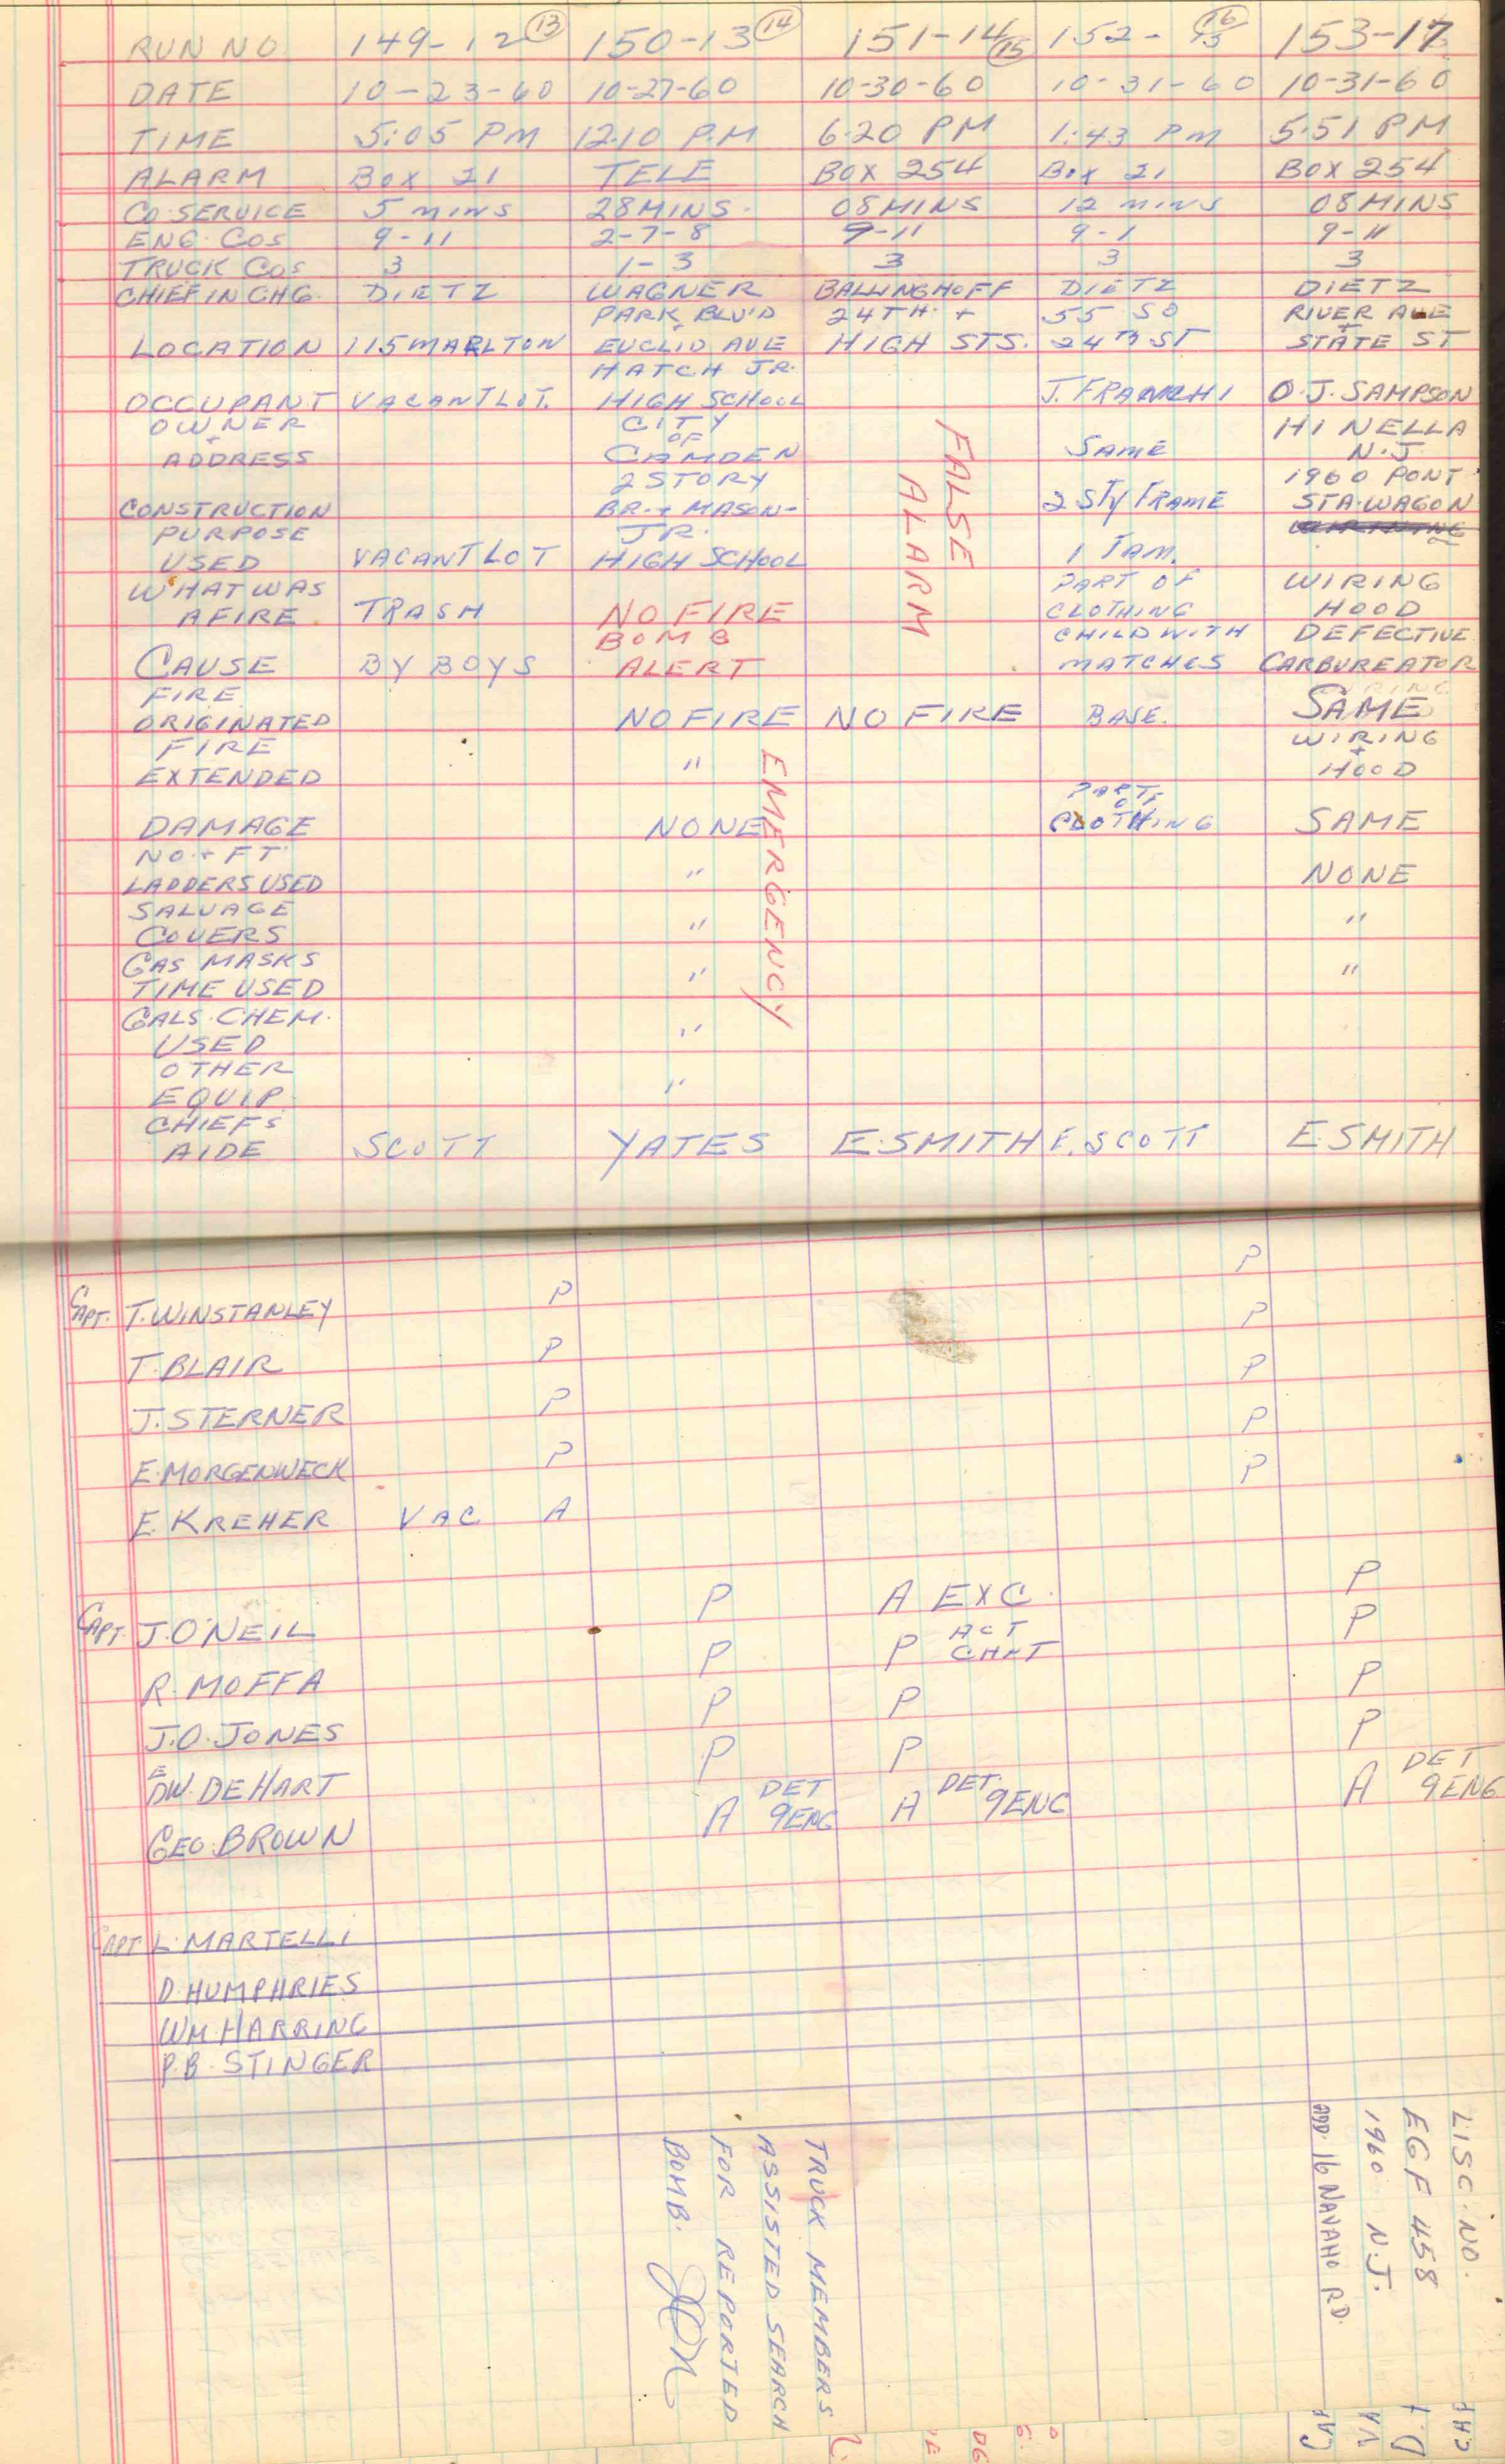 RUN NO. 149-12 (13) 150-13 (14) 151-14 (15) 152-15 (16) 153-17
DATE 10-23-60 10-27-60 10-30-60 10-31-60 10-31-60
TIME 5:05 PM 12.10 P.M 6.20 PM 1:43 PM 5:51 PM
ALARM BOX 21 TELE BOX 254 BOX 21 BOX 254
CO. SERVICE 5 MINS 28 MINS. 08 MINS 12 MINS 08 MINS
ENG. COS 9-11 2-7-8 9-11 9-1 9-11
TRUCK COS 3 1-3 3 3 3
CHIEF IN CHG. DIETZ WAGNER BALLINGHOFF DIETZ DIETZ
PARK BLV'D 24TH. + 55 SO RIVER AVE
+ +
LOCATION 115 MARLTON EUCLID AVE HIGH STS. 24TH ST STATE ST
HATCH JR.
OCCUPANT VACANT LOT. HIGH SCHOOL J. FRANCHI O.J. SAMPSON
OWNER CITY HI NELLA
+ OF
ADDRESS CAMDEN SAME N.J
2 STORY 1960 PONT
CONSTRUCTION BR. + MASON- 2 STY FRAME STA. WAGON
PURPOSE JR.
USED VACANT LOT HIGH SCHOOL 1 FAM.
WHAT WAS PART OF WIRING
AFIRE TRASH NO FIRE CLOTHING HOOD
BOMB CHILD WITH DEFECTIVE
CAUSE BY BOYS ALERT MATCHES CARBUREATOR
FALSE
ALARM
FIRE
ORIGINATED NO FIRE NO FIRE BASE. SAME
FIRE WIRING
+
EXTENDED " HOOD
PART
OF
DAMAGE NONE CLOTHING SAME
NO. + FT
LADDERS USED " NONE
SALVAGE
COVERS " "
GAS MASKS
TIME USED " "
GALS. CHEM.
USED "
OTHER
EQUIP. "
EMERGENCY
CHIEFS
AIDE SCOTT YATES E.SMITH E. SCOTT E.SMITH
CAPT. T. WINSTANLEY P P
T. BLAIR P P
J. STERNER P P
E. MORGENWECK P P
E. KREHER VAC A P
CAPT. J. O'NEIL P A EXC. P
R. MOFFA P P ACT CAPT P
J.O. JONES P P P
EDW. DEHART P P P
GEO. BROWN A DET 9ENG A DET. 9ENG A DET 9ENG
CAPT L. MARTELLI
D. HUMPHRIES
WM HARRING
P.B. STINGER
TRUCK MEMBERS
ASSISTED SEARCH
FOR REPORTED
BOMB.
LISC. NO.
EGF 458
1960 N.J.
ADD. 16 NAVAHO RD.